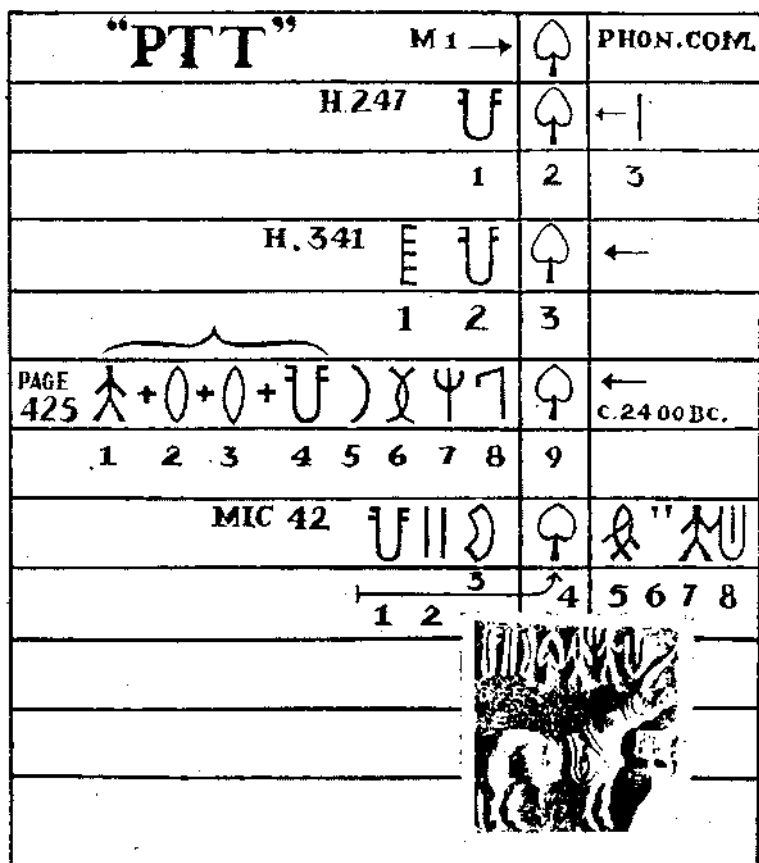 “PTT” M 1 → PHON.COM.
H.247 ←
1 2 3
H.341 ←
1 2 3
PAGE 425 + + + ←
C.2400 BC.
1 2 3 4 5 6 7 8 9
MIC 42
1 2 3 4 5 6 7 8